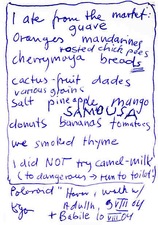 I ate from the market:
guave
Oranges mandarines
rosted chick pees
cherrymoya breads
cactus-fruit dades
various grains
salt pineapple mango
SAMOUSA
donuts bananas tomatoes
we smoked thyme
I did NOT try camel-milk
(to dangerous → run to toilet!)
Polaroid walk w/
by
Adulth, 9 VIII 04
+ Babile 10 VIII 04